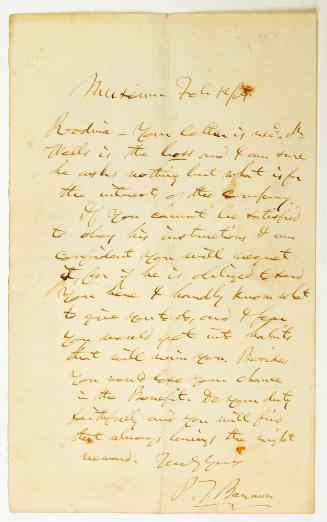 Museum Feb 12/64
Rosina - Your letter is recd. Mr
Wells is the boss and I am sure
he asks nothing but what is for
the interest of the company.
If you cannot be satisfied
to obey his instructions I am
confident you will regret
it, for if he is obliged to send
you here I hardly know what
to give you to do, and I fear
you would get into habits
that will ruin you. Besides
you would lose your chance
in the Benefit. Do your duty
faithfully and you will find
that always brings the right
reward. Truly Yours
P. T. Barnum